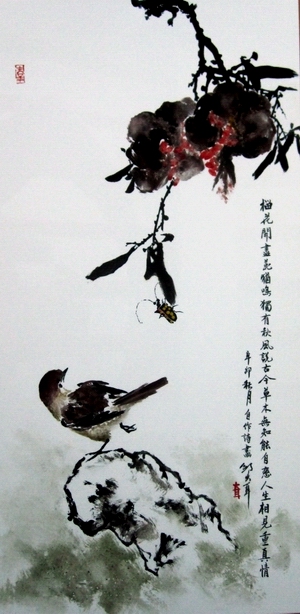 榴花開盡鳴獨有秋風說古今草木無知能自戀人生相見重真情
辛卯秋月自作詩畫